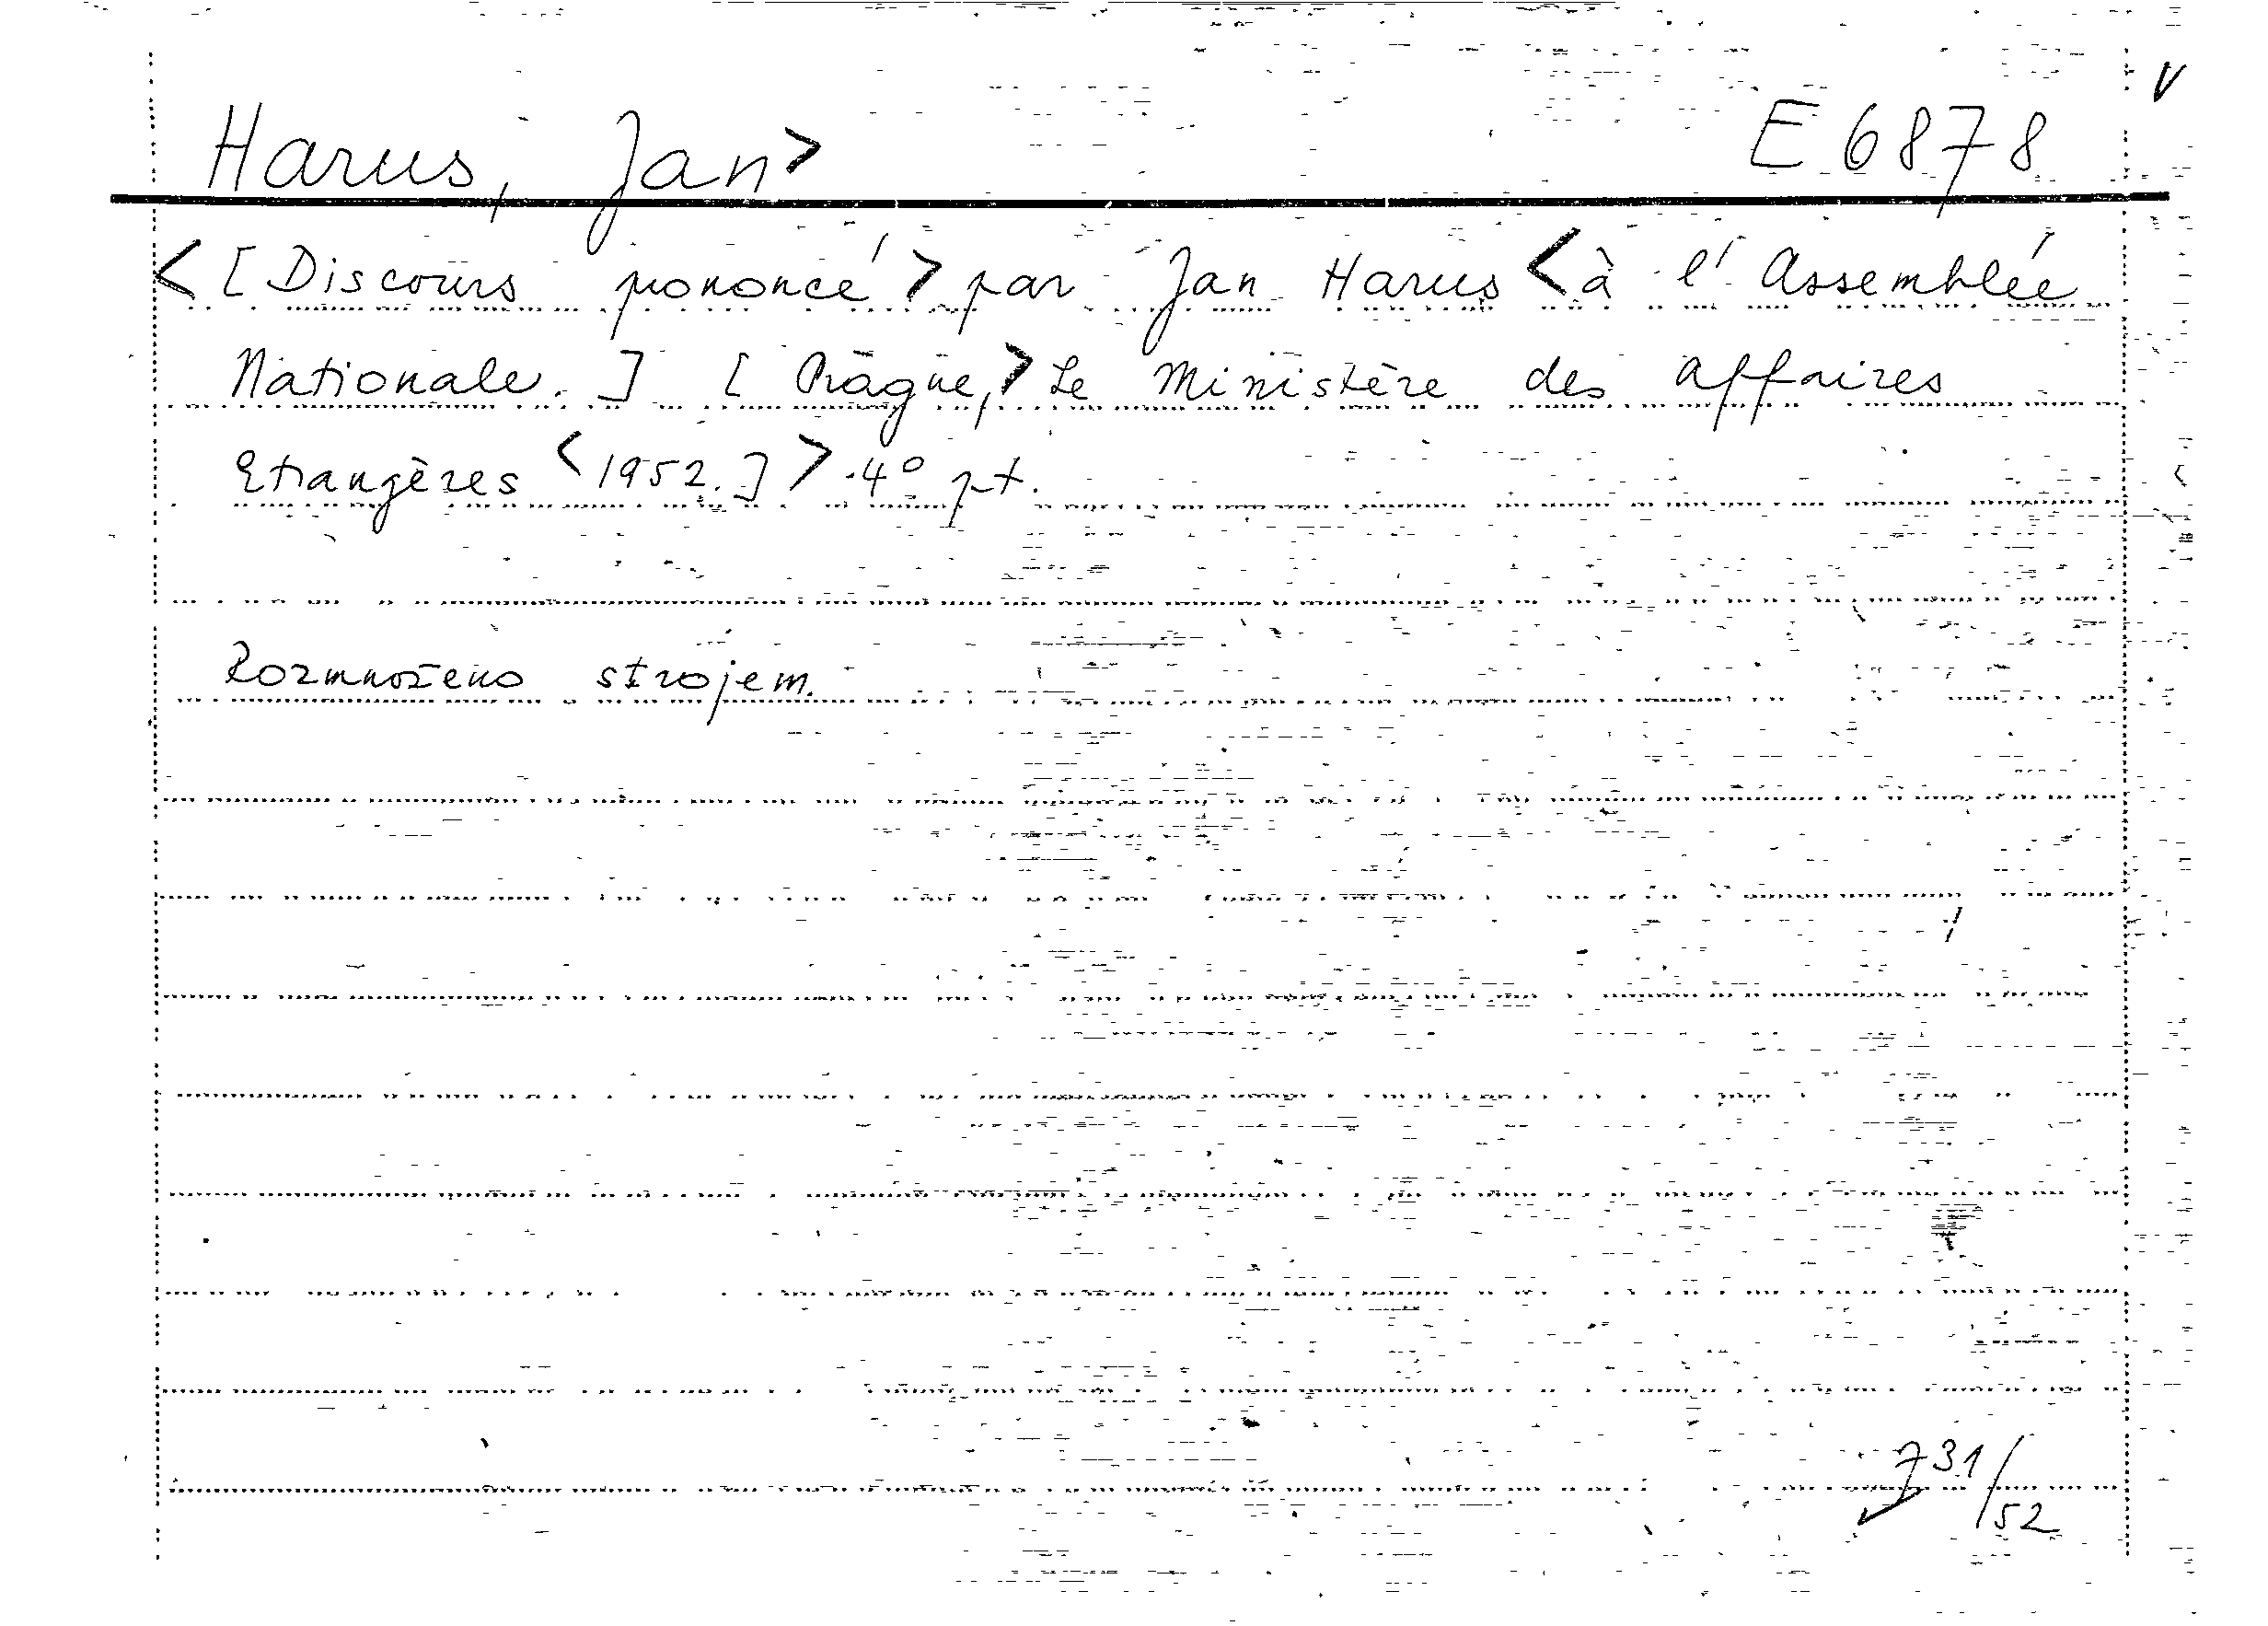 Harus, Jan> E 6878
<[Discours prononcé> par Jan Harus <à l'Assemblée
Nationale.] [Prague,> Le Ministère des Affaires
Etrangères <1952.]> 4° pt.
Rozmnoženo strojem.
731/52